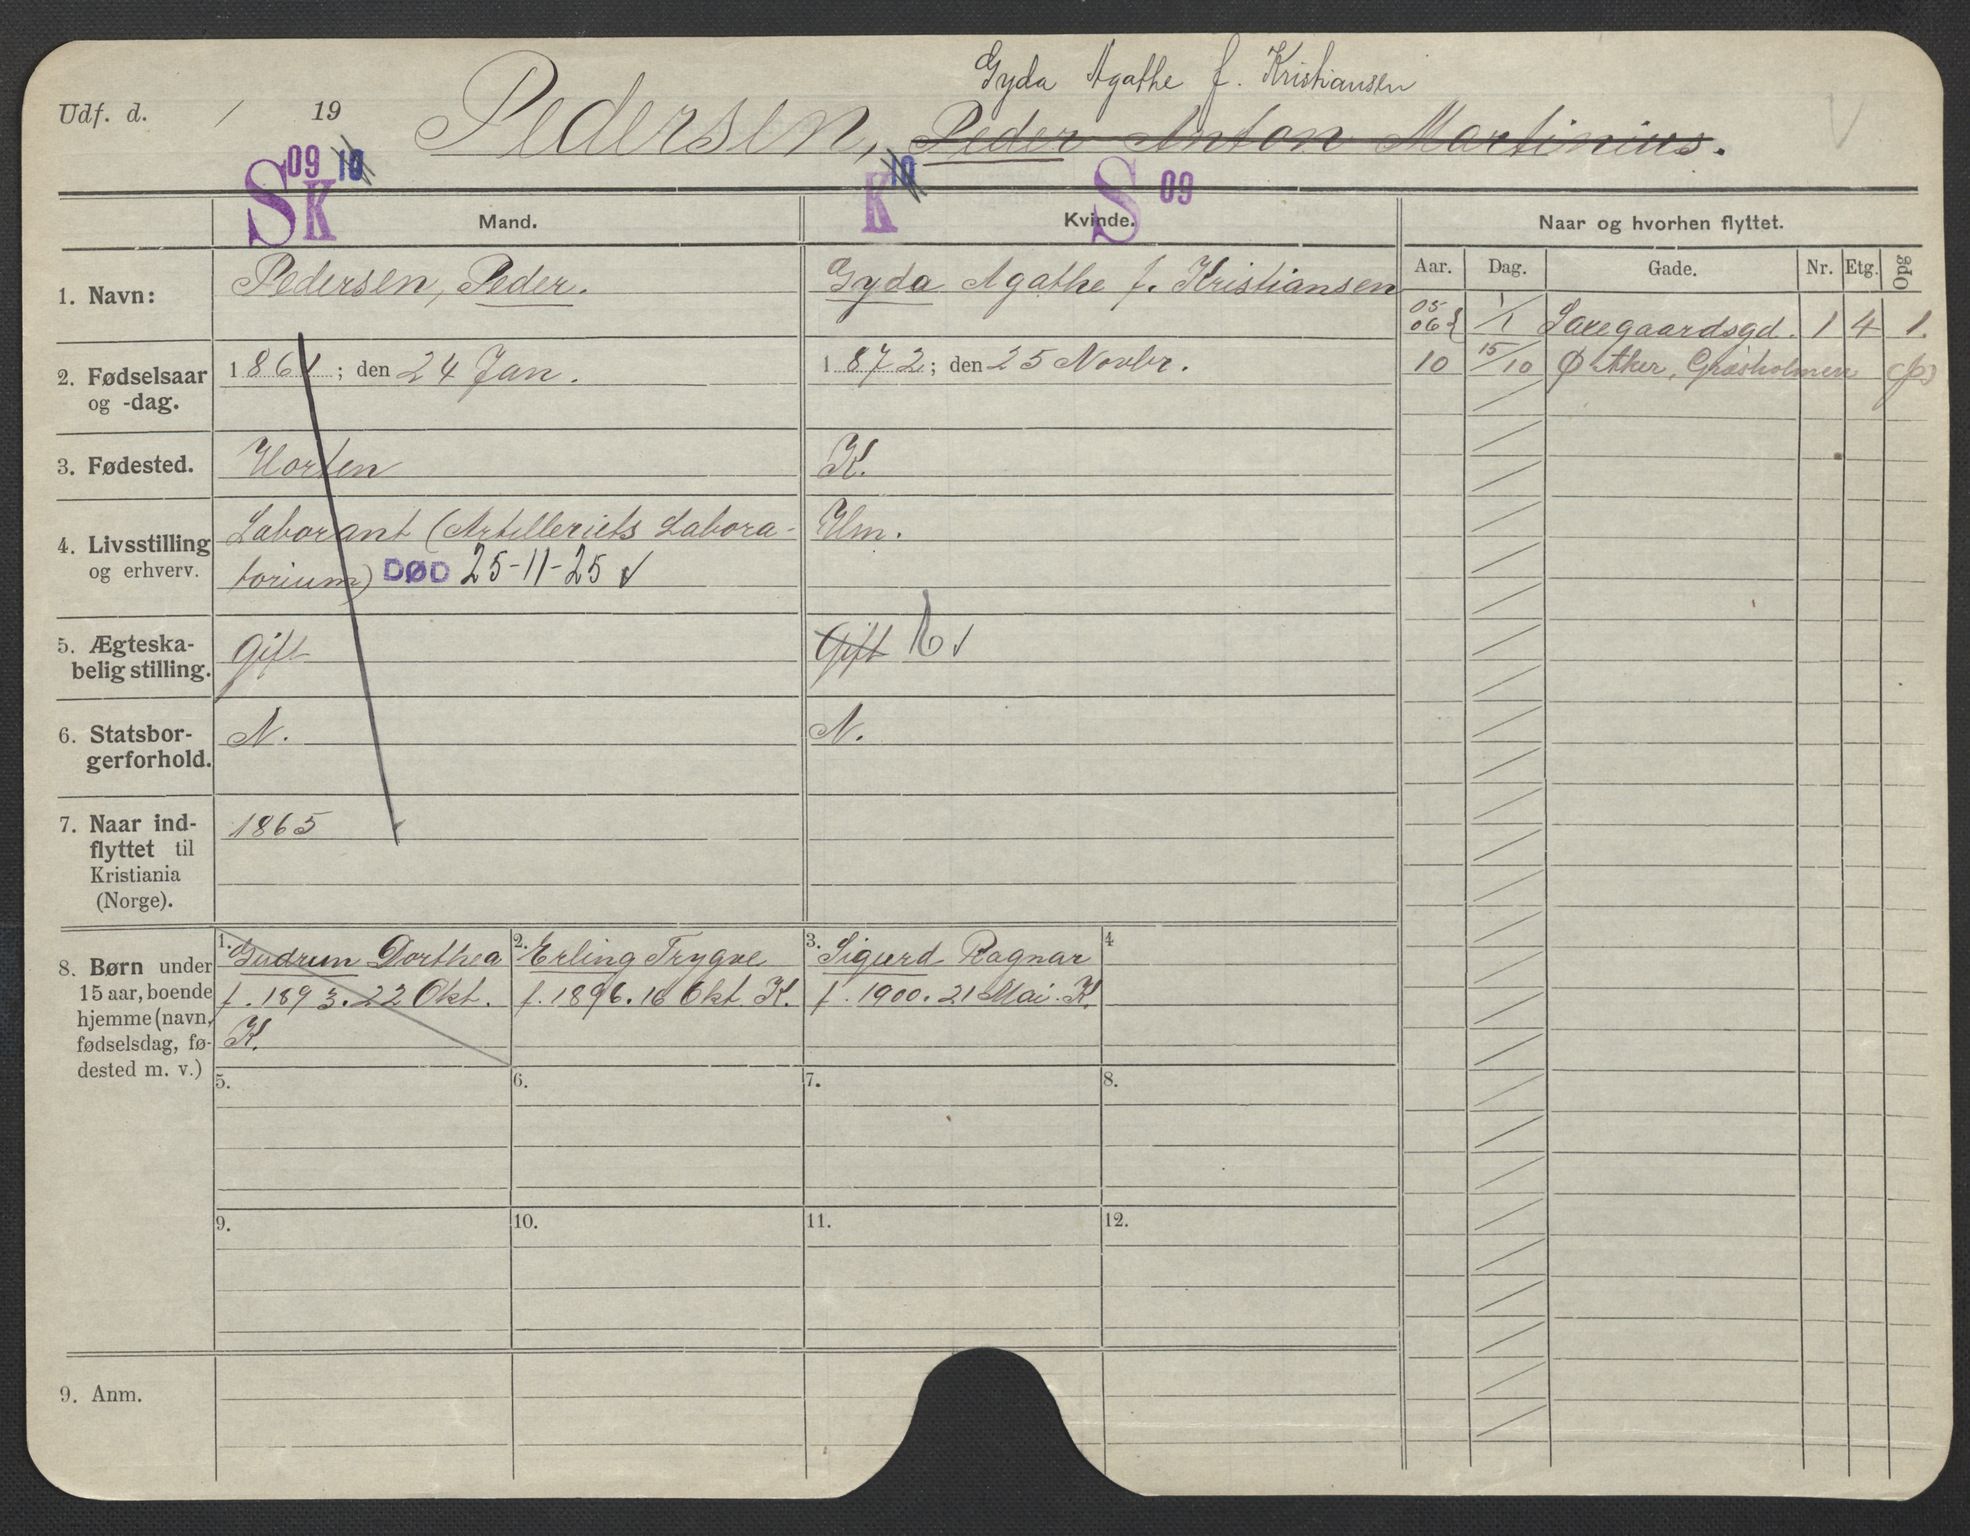 Gyda Agathe f. Kristiansen
Udf. d. / 19 Pedersen, Peder Anton Martinius.
S 09 K 10 K 10 S 09
Mand. Kvinde. Naar og hvorhen flyttet.
Aar. Dag. Gade. Nr. Etg. Opg
1. Navn: Pedersen, Peder. Gyda Agathe f. Kristiansen
05
06 } 1/1 Løvegaardsgd. 1 4 1.
10 15/10 Ø Aker, Græsholmen
2. Fødselsaar 1861; den 24 Jan. 1872; den 25 Novbr.
og -dag.
3. Fødested. Horten K.
4. Livsstilling Laborant (Artilleriets Labora- Hm.
og erhverv. torium) DØD 25-11-25
5. Ægteska- Gift Gift
belig stilling.
6. Statsbor- N. N.
gerforhold.
7. Naar ind- 1865
flyttet til
Kristiania
(Norge).
8. Børn under
15 aar, boende
hjemme (navn,
fødselsdag, fø-
dested m. v.)
1. Gudrun Dorthea
f. 1893. 22 Okt.
K.
2. Erling Trygve
f. 1896. 16 Okt K.
3. Sigurd Ragnar
f. 1900. 21 Mai. K.
4
5. 6. 7. 8.
9. 10. 11. 12.
9. Anm.